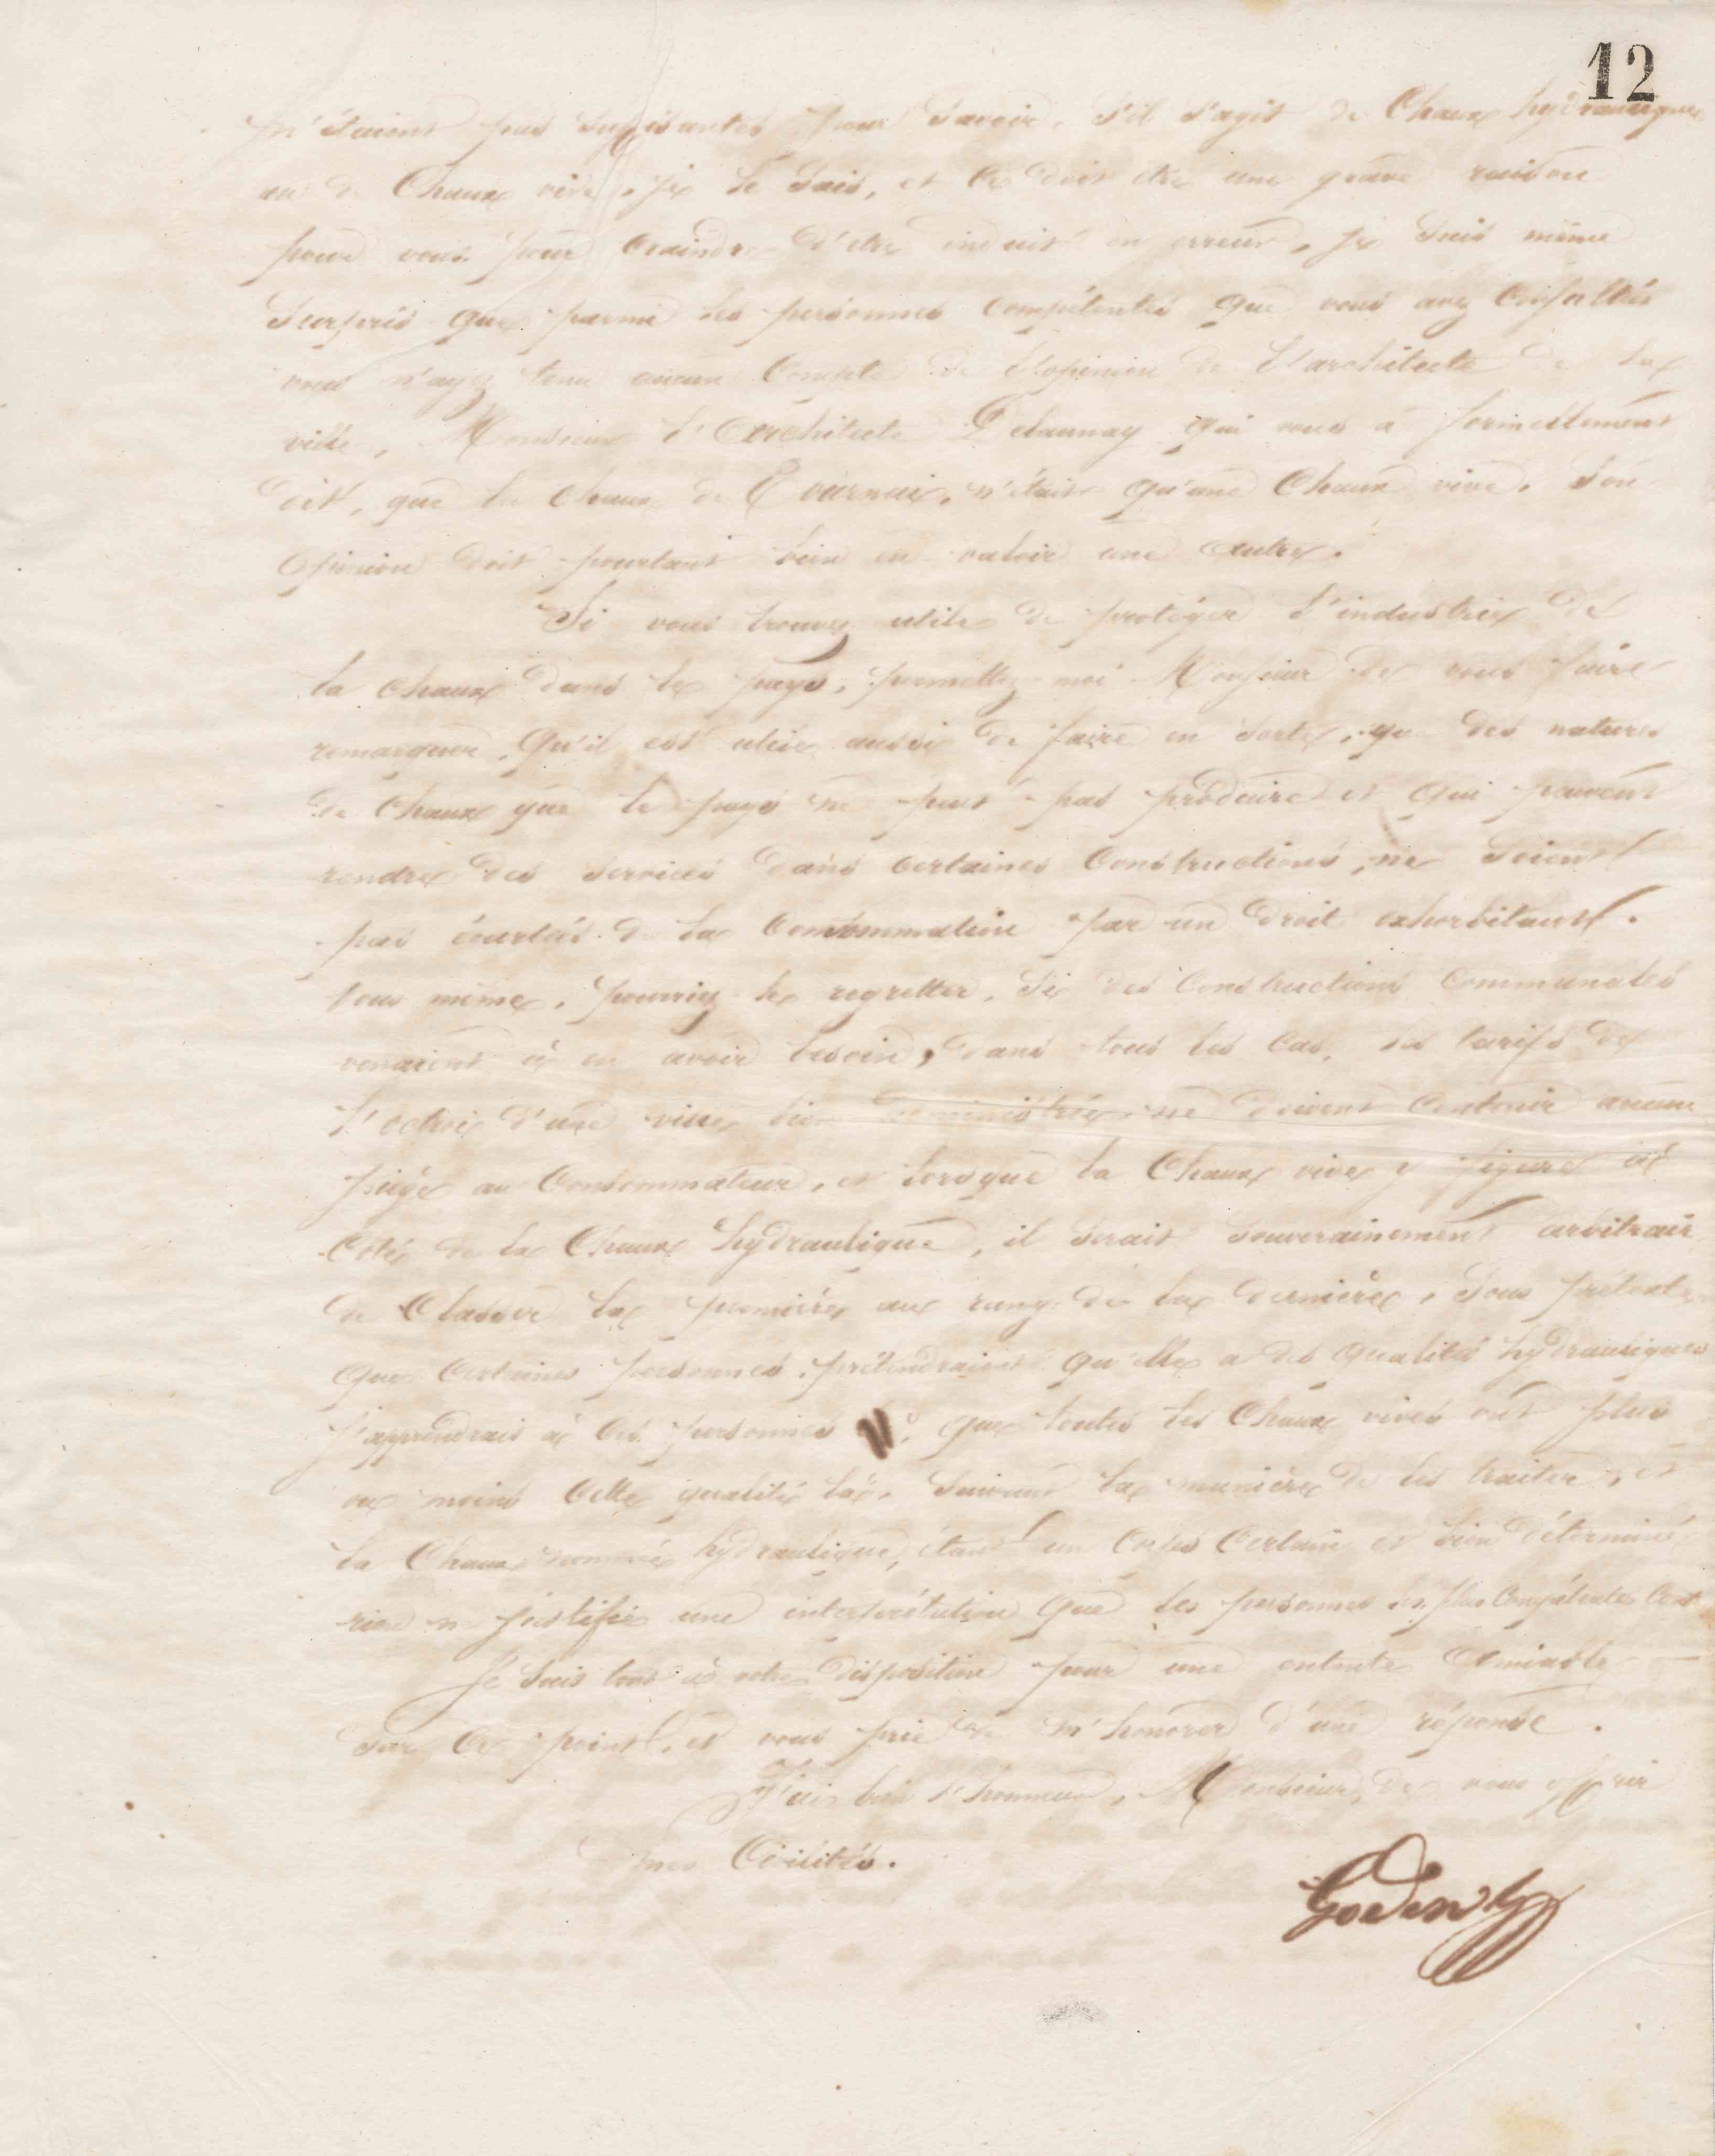 12
n'étaient pas suffisantes pour savoir, s'il s'agit de Chaux hydraulique
ou de Chaux vive, je le sais, et ce doit être une grave raison
pour vous pour craindre d'être induit en erreur, je suis même
surpris que parmi les personnes compétentes que vous avez consultées
vous n'ayez tenu aucun compte de l'opinion de l'architecte de la
ville, Monsieur l'Architecte Delaunay qui vous a formellement
dit, que la chaux de Tournai, n'était qu'une Chaux vive. Son
opinion doit pourtant bien en valoir une autre.
Si vous trouvez utile de protéger l'industrie de
la chaux dans le pays, permettez moi Monsieur de vous faire
remarquer, qu'il est utile aussi de faire en sorte, que des natures
de Chaux que le pays ne peut pas produire et qui peuvent
rendre des services dans certaines constructions, ne soient
pas écartées de la consommation par un droit exhorbitant.
Vous même, pourriez le regretter, si des constructions communales
venaient à en avoir besoin, dans tous les cas, les tarifs de
l'octroi d'une ville bien administrée ne doivent contenir aucun
piège au consommateur, et lorsque la Chaux vive y figure à
côté de la Chaux hydraulique, il serait souverainement arbitraire
de classer la première au rang de la dernière, sous prétexte
que certaines personnes prétendraient qu'elle a des qualités hydrauliques
j'apprendrais à ces personnes que toutes les Chaux vives ont plus
ou moins cette qualité là, suivant la manière de les traiter, et
la Chaux nommée hydraulique, étant un corps certain et bien déterminé
rien ne justifie une interprétation que les personnes les plus compétentes
Je suis tout à votre disposition pour une entente amiable
sur ce point, et vous prie de m'honorer d'une réponse.
J'ai bien l'honneur, Monsieur, de vous offrir
mes Civilités.
Godin